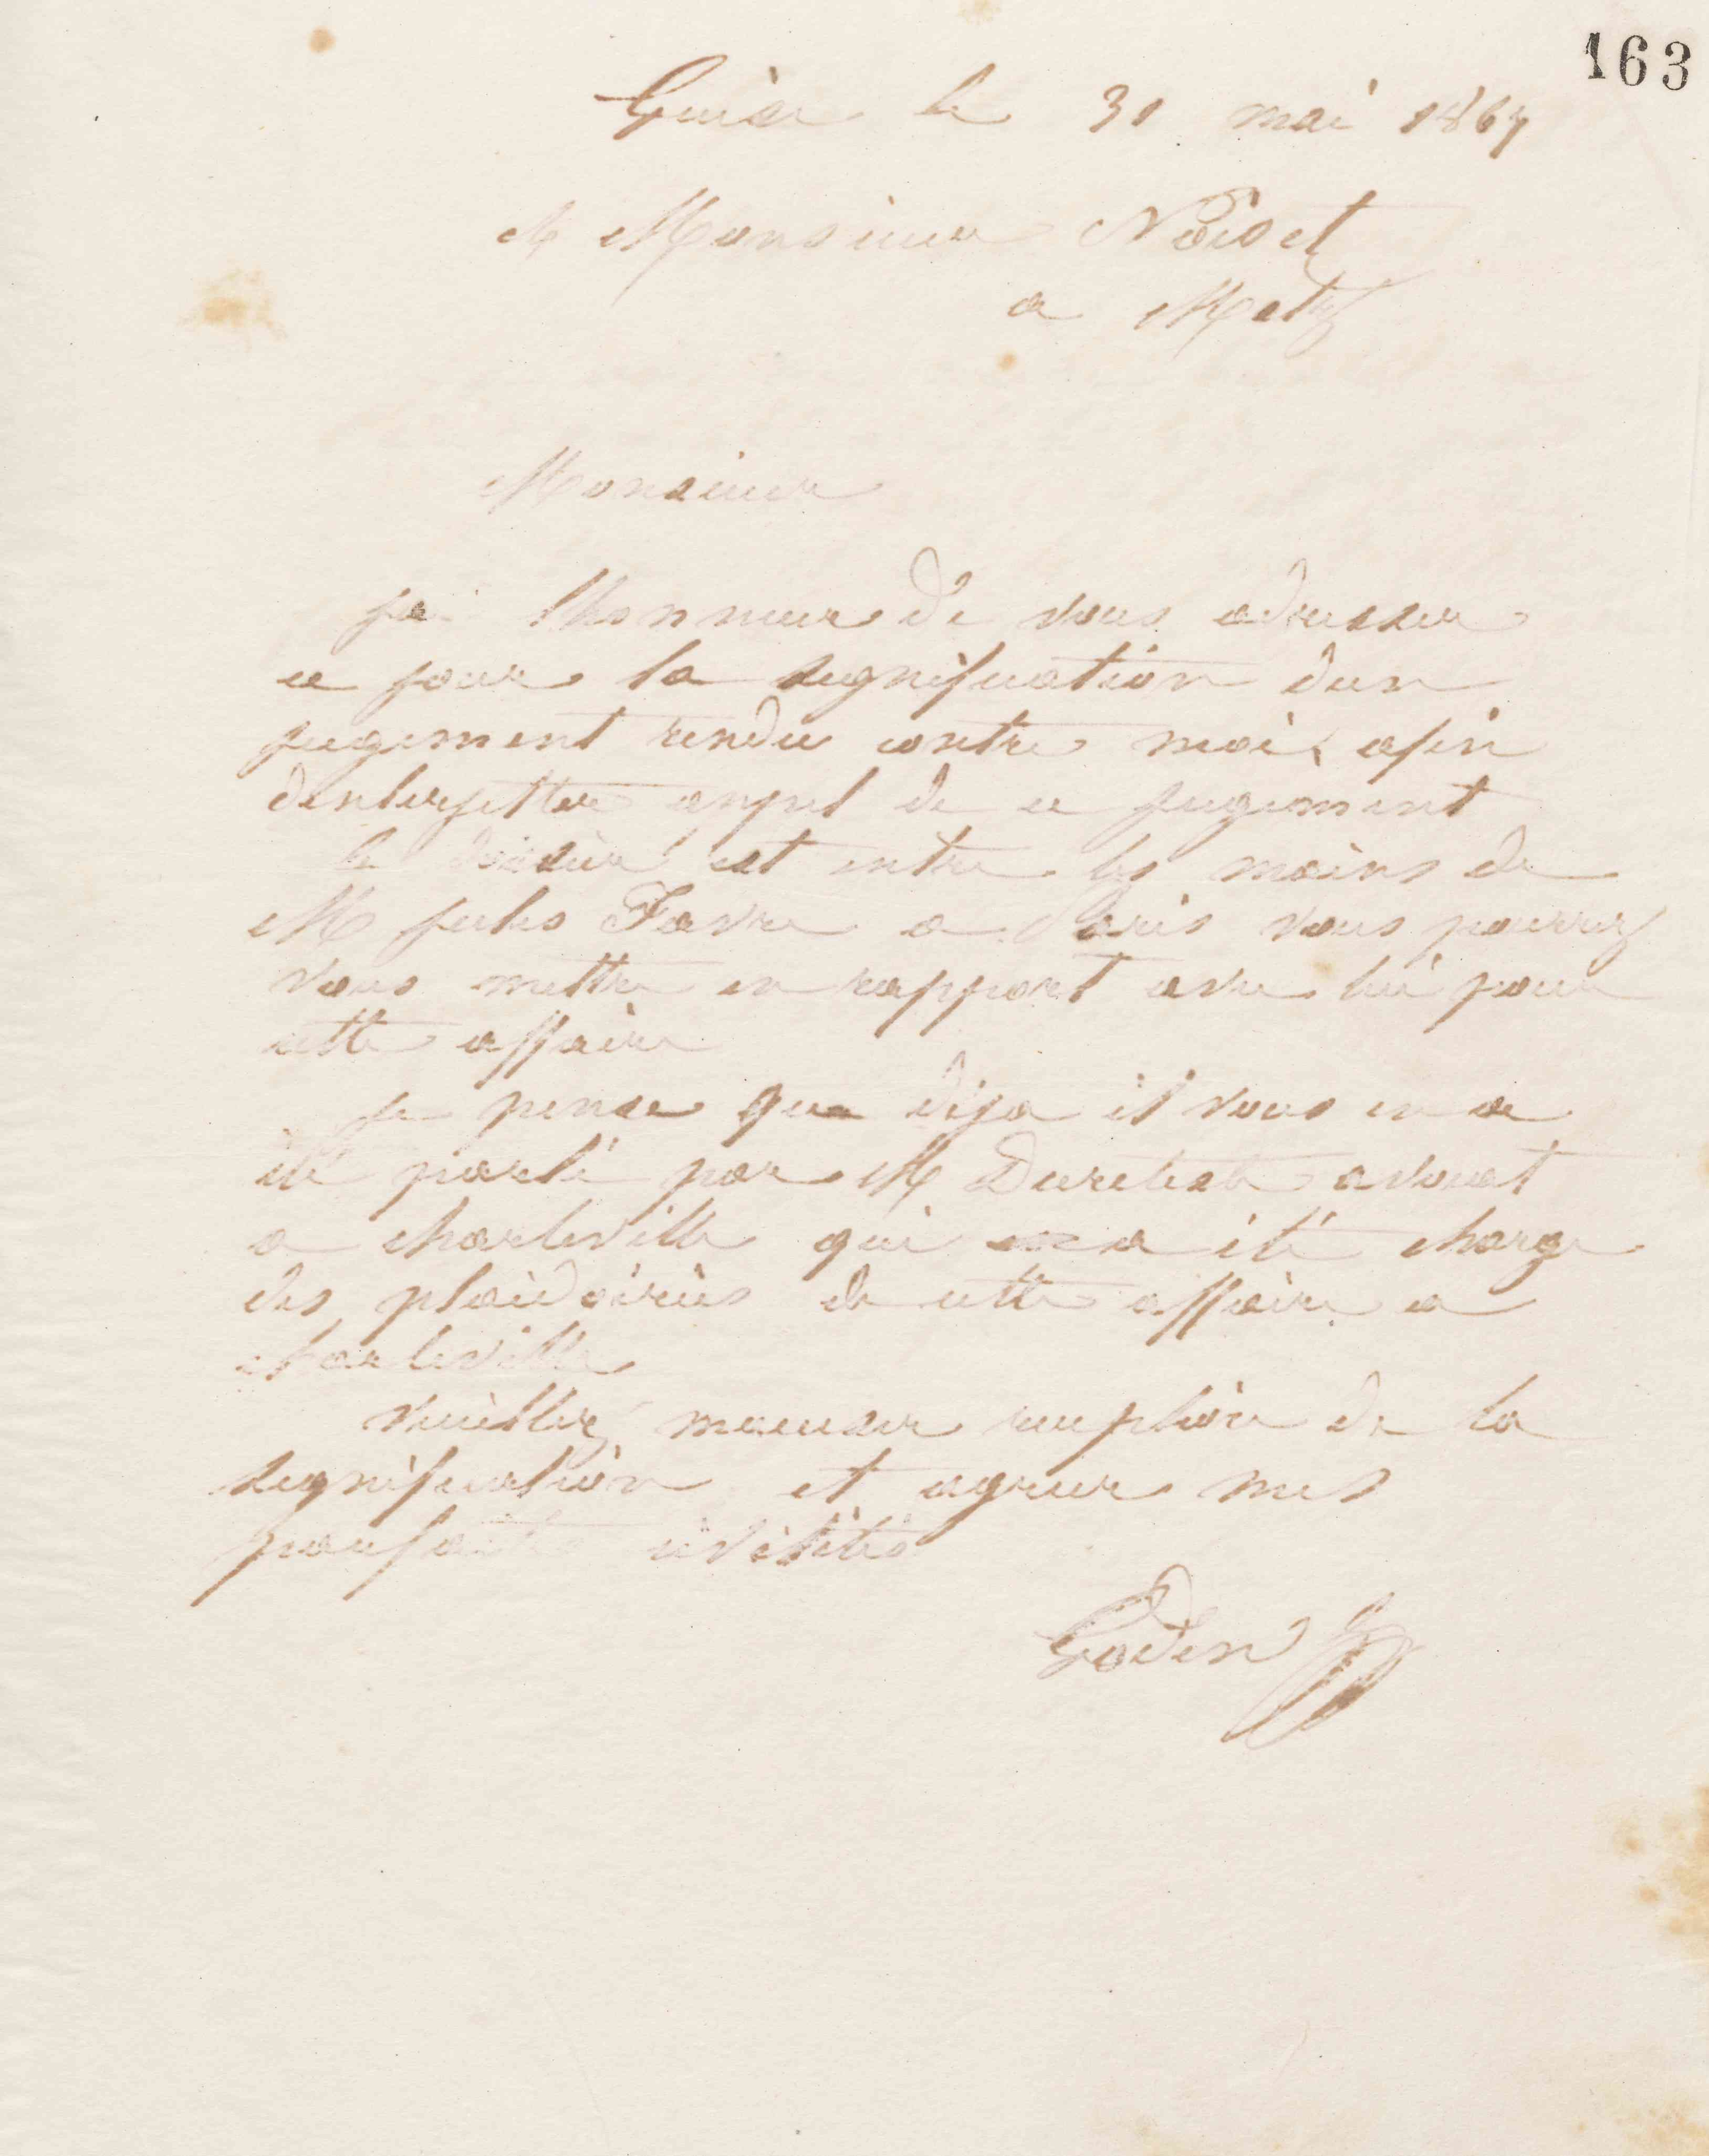 163
Guise le 31 mai 1864
A Monsieur Noisot
a Metz
Monsieur
jai lhonneur de vous adresser
ce jour la signification dun
jugement rendu contre moi, afin
dinterjetter appel de ce jugement
le dossier est entre les mains de
M jules Favre a Paris vous pourrez
vous mettre en rapport avec lui pour
cette affaire
je pense que deja il vous en a
été parlé par M avocat
a charleville qui a été charge
des plaidoiries de cette affaire a
charleville
veuillez maccuser reception de la
signification et agreer mes
parfaites civilités
Godin